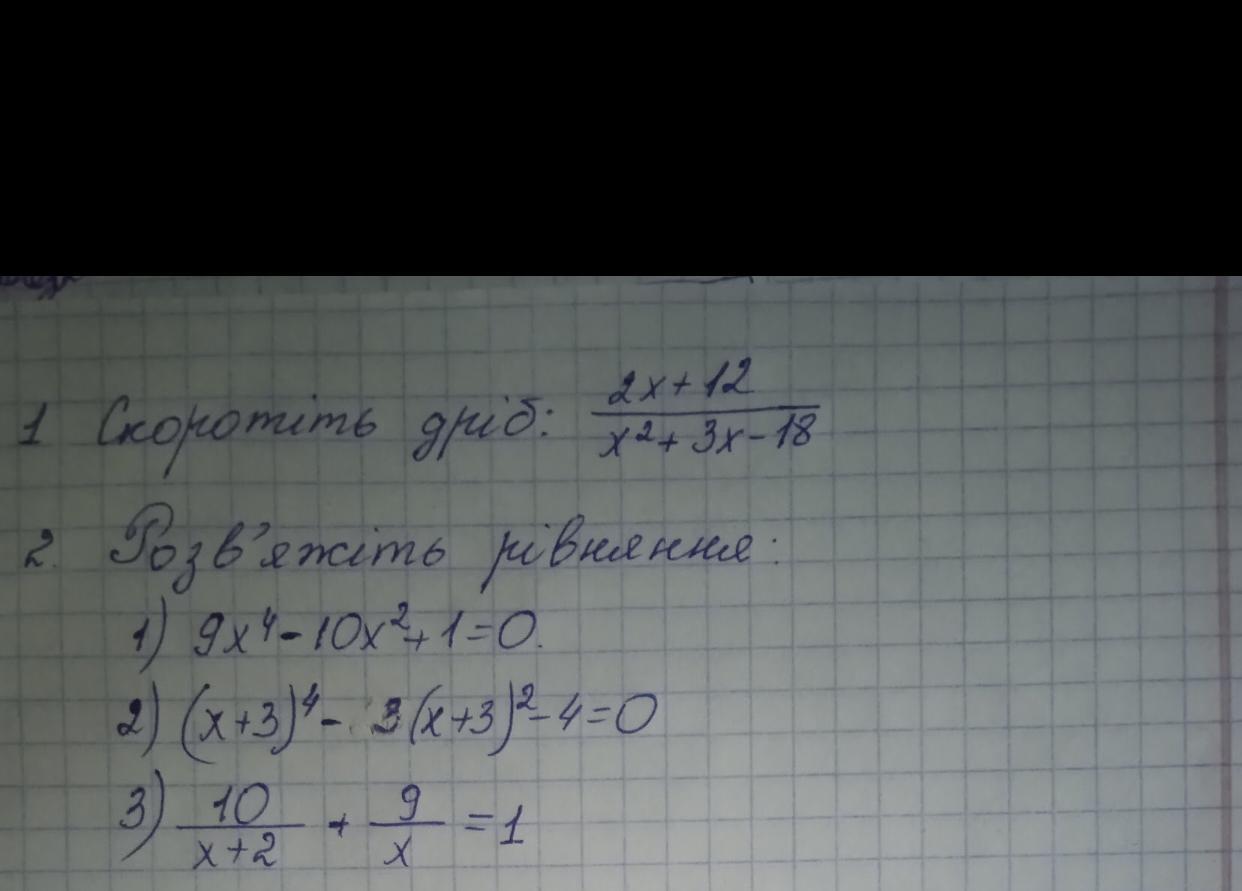 1 Скоротіть дріб: (2x+12)/(x²+3x-18)
2. Розв'яжіть рівняння:
1) 9x⁴-10x²+1=0.
2) (x+3)⁴- 3(x+3)²-4=0
3) 10/(x+2) + 9/x =1